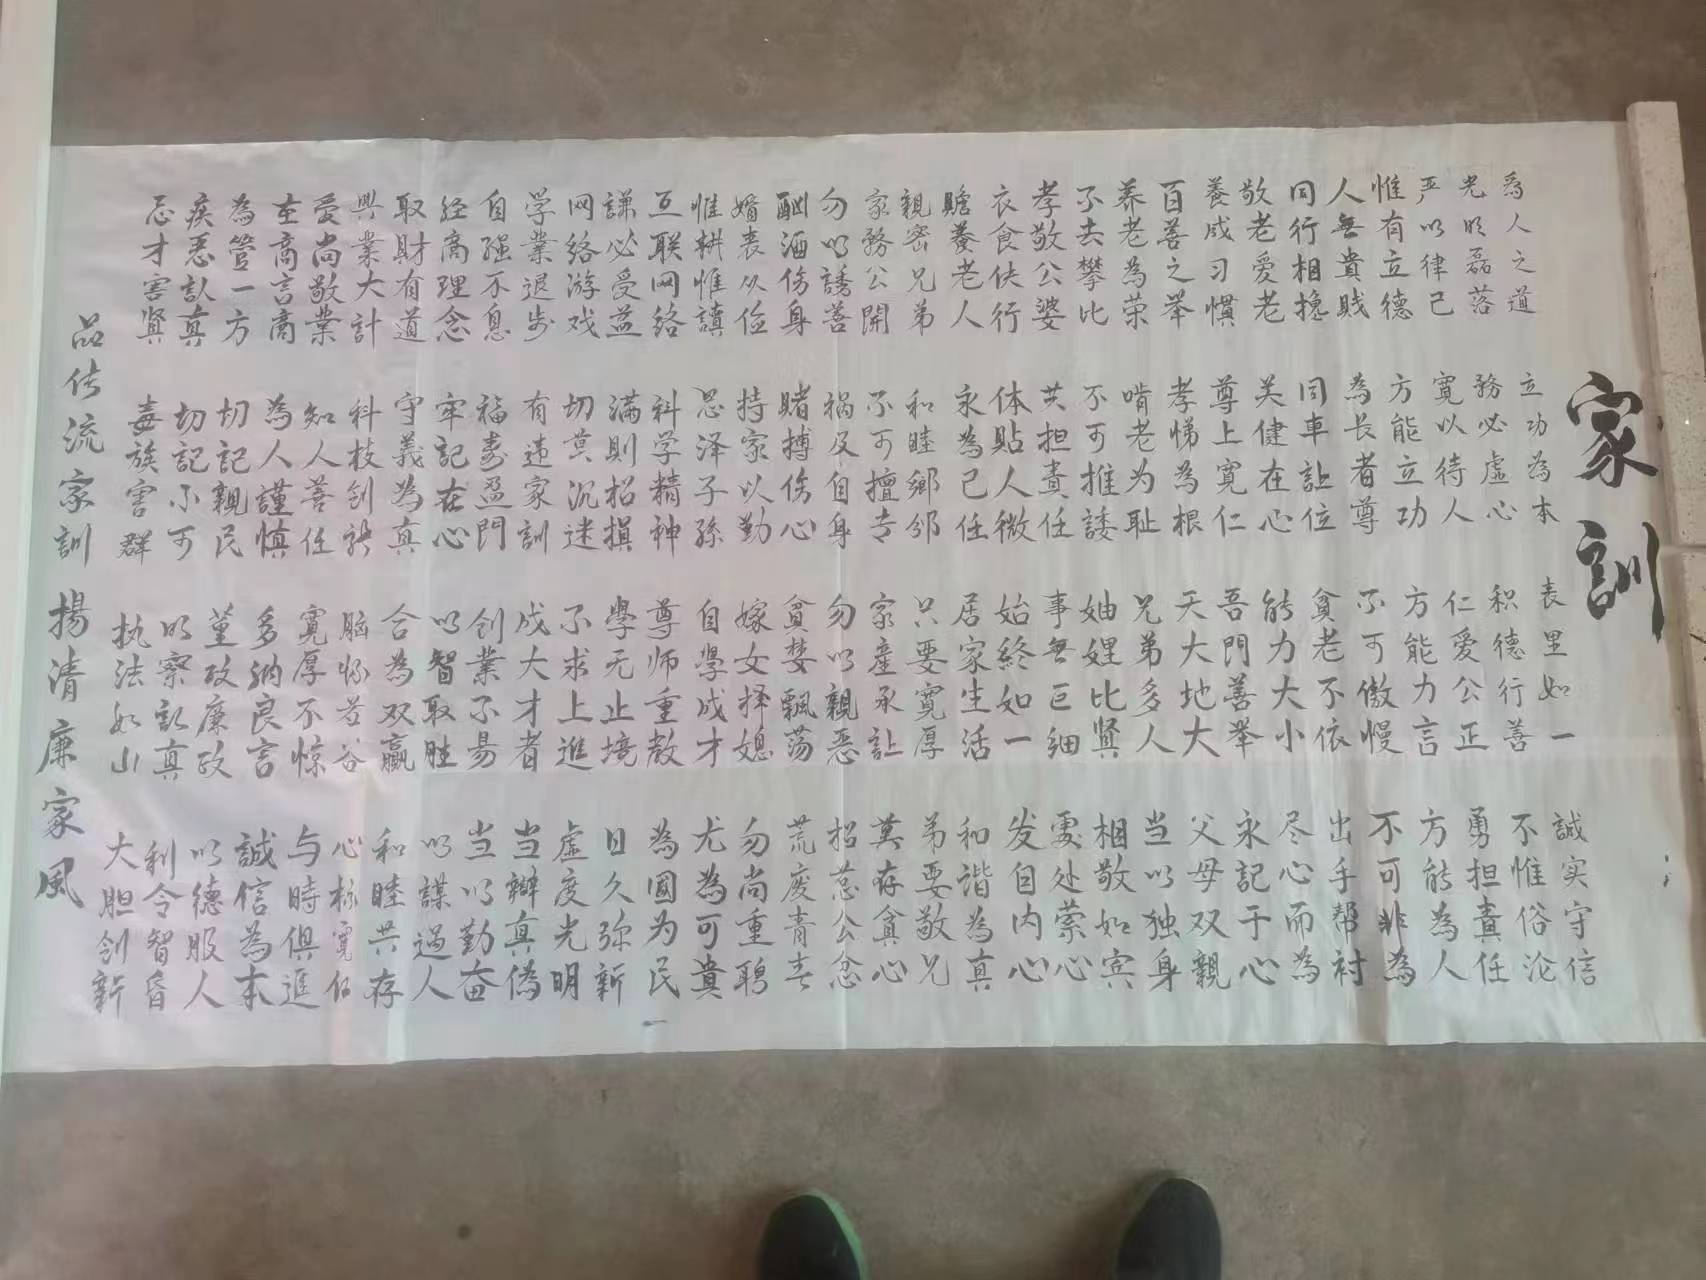 家訓
為人之道 立功為本 表里如一 誠实守信
光明磊落 務必虚心 积德行善 不惟俗沦
严以律己 寛以待人 仁爱公正 勇担責任
惟有立德 方能立功 方能力言 方能為人
人無貴贱 為長者尊 不可傲慢 不可非為
同行相搀 同車訟位 貧老不依 出手帮衬
敬老爱老 关健在心 能力大小 尽心而為
養成习慣 尊上寛仁 吾門善举 永記于心
百善之举 孝悌為根 天大地大 父母双親
养老為荣 啃老为耻 兄弟多人 当以独身
不去攀比 不可推諉 妯娌比贤 相敬如宾
孝敬公婆 共担責任 事無巨细 處处萦心
衣食伕行 体貼人微 始終如一 发自内心
贍養老人 永為己任 居家生活 和谐為真
親密兄弟 和睦鄉邻 只要寛厚 弟要敬兄
家務公開 不可擅专 家產承訟 莫存貪心
勿以誘善 祸及自身 勿以親恶 招怠公忿
酗酒伤身 賭搏伤心 貪婪飄荡 荒废青春
婚丧从俭 持家以勤 嫁女择媳 勿尚重聘
惟耕惟讀 恩泽子孫 自學成才 尤為可貴
互联网络 科学精神 尊师重教 為國为民
謙必受益 滿則招損 學无止境 日久弥新
网络游戏 切莫沉迷 不求上進 虚度光明
学業退步 有违家訓 成大才者 当辦真偽
自强不息 福壽盈門 创業不易 当以勤奋
经商理念 牢記在心 以智取胜 以謀過人
取財有道 守義為真 合為双赢 和睦共存
興業大計 科技创新 脑怀若谷 心标寛
爱尚敬業 知人善任 寛厚不惊 与時俱進
在商言商 為人謹慎 多納良言 誠信為本
為管一方 切記親民 堇政廉政 以德服人
疾恶訟真 切記不可 明察訟真 利令智昏
忌才害贤 毒族害群 执法如山 大胆创新
品传流家訓 揚清廉家風